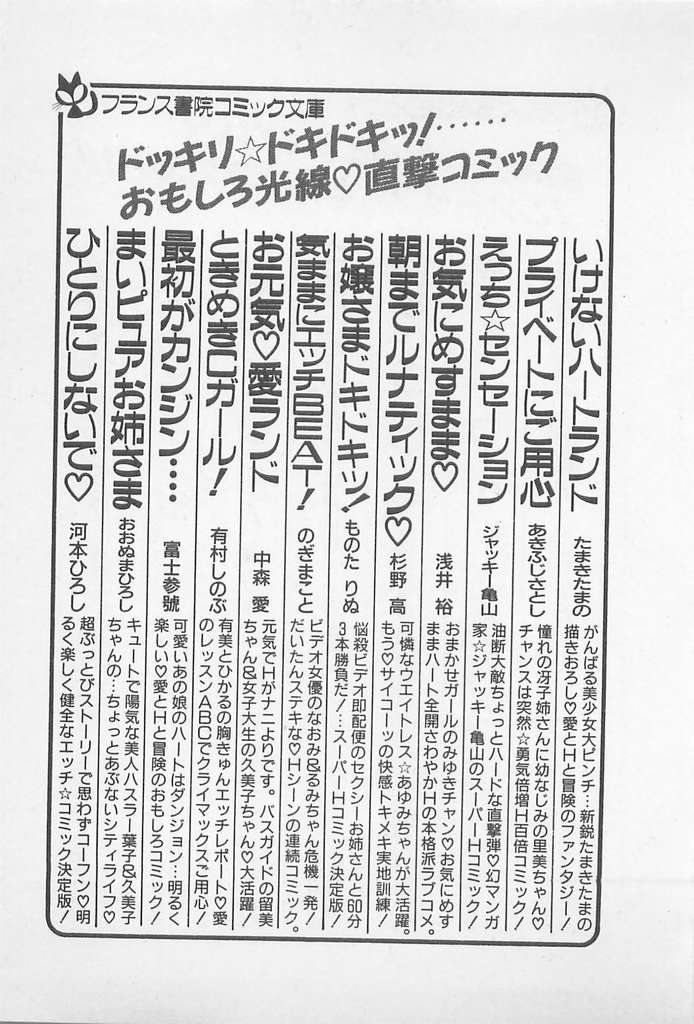 フランス書院コミック文庫
ドッキリ☆ドキドキッ!……
おもしろ光線♡直撃コミック
いけないハートランド
たまきたまの
がんばる美少女大ピンチ…新鋭たまきたまの
描きおろし♡愛とHと冒険のファンタジー!
プライベートにご用心
あきふじさとし
憧れの冴子姉さんに幼なじみの里美ちゃん♡
チャンスは突然☆勇気倍増H百倍コミック!
えっち☆センセーション
ジャッキー亀山
油断大敵ちょっとハードな直撃弾♡幻マンガ
家☆ジャッキー亀山のスーパーHコミック!
お気にめすまま♡
浅井 裕
おまかせガールのみゆきチャン♡お気にめす
ままハート全開さわやかHの本格派ラブコメ。
朝までルナティック♡
杉野 高
可憐なウエイトレス☆あゆみちゃんが大活躍。
もう♡サイコーッの快感トキメキ実地訓練!
お嬢さまドキドキッ!
ものた りぬ
悩殺ビデオ即配便のセクシーお姉さんと60分
3本勝負だ!…スーパーHコミック決定版!
気ままにエッチBEAT!
のぎまこと
ビデオ女優のなおみ&るみちゃん危機一発!
だいたんステキな♡Hシーンの連続コミック。
お元気♡愛ランド
中森 愛
元気でHがナニよりです。バスガイドの留美
ちゃん&女子大生の久美子ちゃん♡大活躍!
ときめきCガール!
有村しのぶ
有美とひかるの胸きゅんエッチレポート♡愛
のレッスンABCでクライマックスご用心!
最初がカンジン……
富士参號
可愛いあの娘のハートはダンジョン…明るく
楽しい♡愛とHと冒険のおもしろコミック!
まいピュアお姉さま
おおぬまひろし
キュートで陽気な美人ハスラー葉子&久美子
ちゃんの…ちょっとあぶないシティライフ♡
ひとりにしないで♡
河本ひろし
超ぶっとびストーリーで思わずコーフン♡明
るく楽しく健全なエッチ☆コミック決定版!